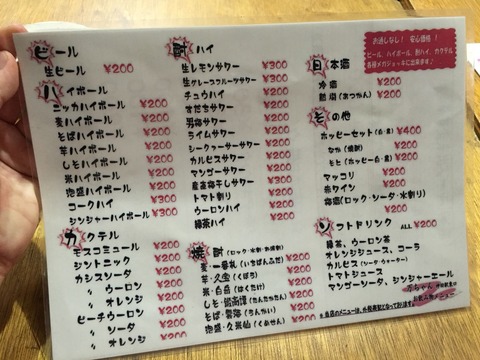 ビール
生ビール ¥200
ハイボール
ニッカハイボール ¥200
麦ハイボール ¥200
そばハイボール ¥200
芋ハイボール ¥200
しそハイボール ¥200
米ハイボール ¥200
泡盛ハイボール ¥200
コークハイ ¥300
ジンジャーハイボール ¥300
カクテル
モスコミュール ¥200
ジントニック ¥200
カシスソーダ ¥200
〃 ウーロン ¥200
〃 オレンジ ¥200
ピーチウーロン ¥200
〃 ソーダ ¥200
〃 オレンジ ¥200
酎ハイ
生レモンサワー ¥300
生グレープフルーツサワー ¥300
チュウハイ ¥200
すだちサワー ¥200
男梅サワー ¥200
ライムサワー ¥200
シークァーサーサワー ¥200
カルピスサワー ¥200
マンゴーサワー ¥200
梅干しサワー ¥300
トマト割り ¥200
ウーロンハイ ¥200
緑茶ハイ ¥200
焼酎(ロック・水割・お湯割)
麦・一番札(いちばんふだ) ¥200
芋・(くぼう) ¥200
米・白岳(はくたけ) ¥200
しそ・鍛高譚(たんたかたん) ¥200
そば・雲海(うんかい) ¥200
泡盛・久米仙(くめせん) ¥200
お通しなし! 安心価格!
ビール、ハイボール、酎ハイ、カクテル
各種メガジョッキに出来ます。
日本酒
冷酒 ¥200
熱燗(あつかん) ¥200
その他
ホッピーセット(白・黒) ¥400
なか(焼酎) ¥200
もと(ホッピー白・黒) ¥200
マッコリ ¥200
赤ワイン ¥200
梅酒(ロック・ソーダ・水割り) ¥200
ソフトドリンク ALL ¥200
緑茶、ウーロン茶
オレンジジュース、コーラ
カルピス(ソーダ・ウォーター)
トマトジュース
マンゴーソーダ、ジンジャーエール
※当店のメニューは、となっております。
お飲み物メニュー